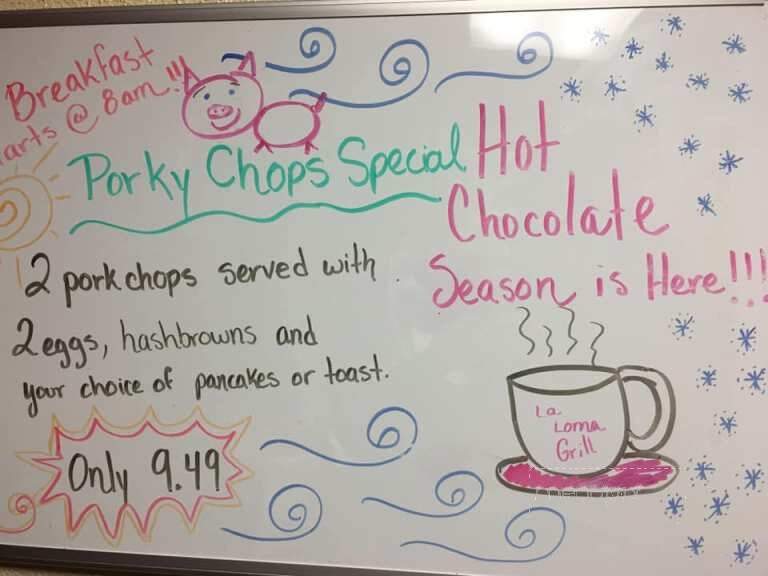 Breakfast
arts @ 8am!!
Porky Chops Special
2 porkchops served with
2 eggs, hashbrowns and
your choice of pancakes or toast.
Only 9.49
Hot
Chocolate
Season is Here!!!
La
Loma
Grill